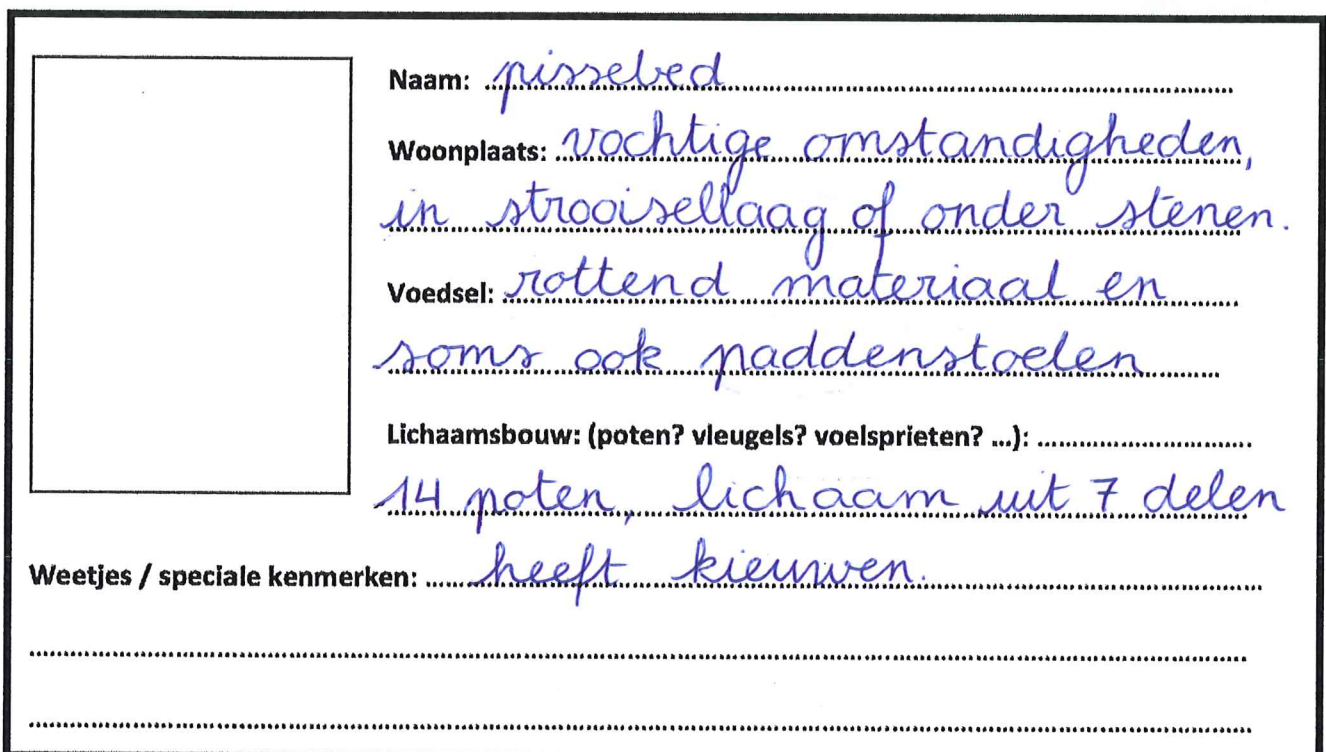 Naam: pissebed
Woonplaats: vochtige omstandigheden,
in strooisellaag of onder stenen.
Voedsel: rottend materiaal en
soms ook paddenstoelen
Lichaamsbouw: (poten? vleugels? voelsprieten? ...):
14 poten, lichaam uit 7 delen
Weetjes / speciale kenmerken: heeft kieuwen.